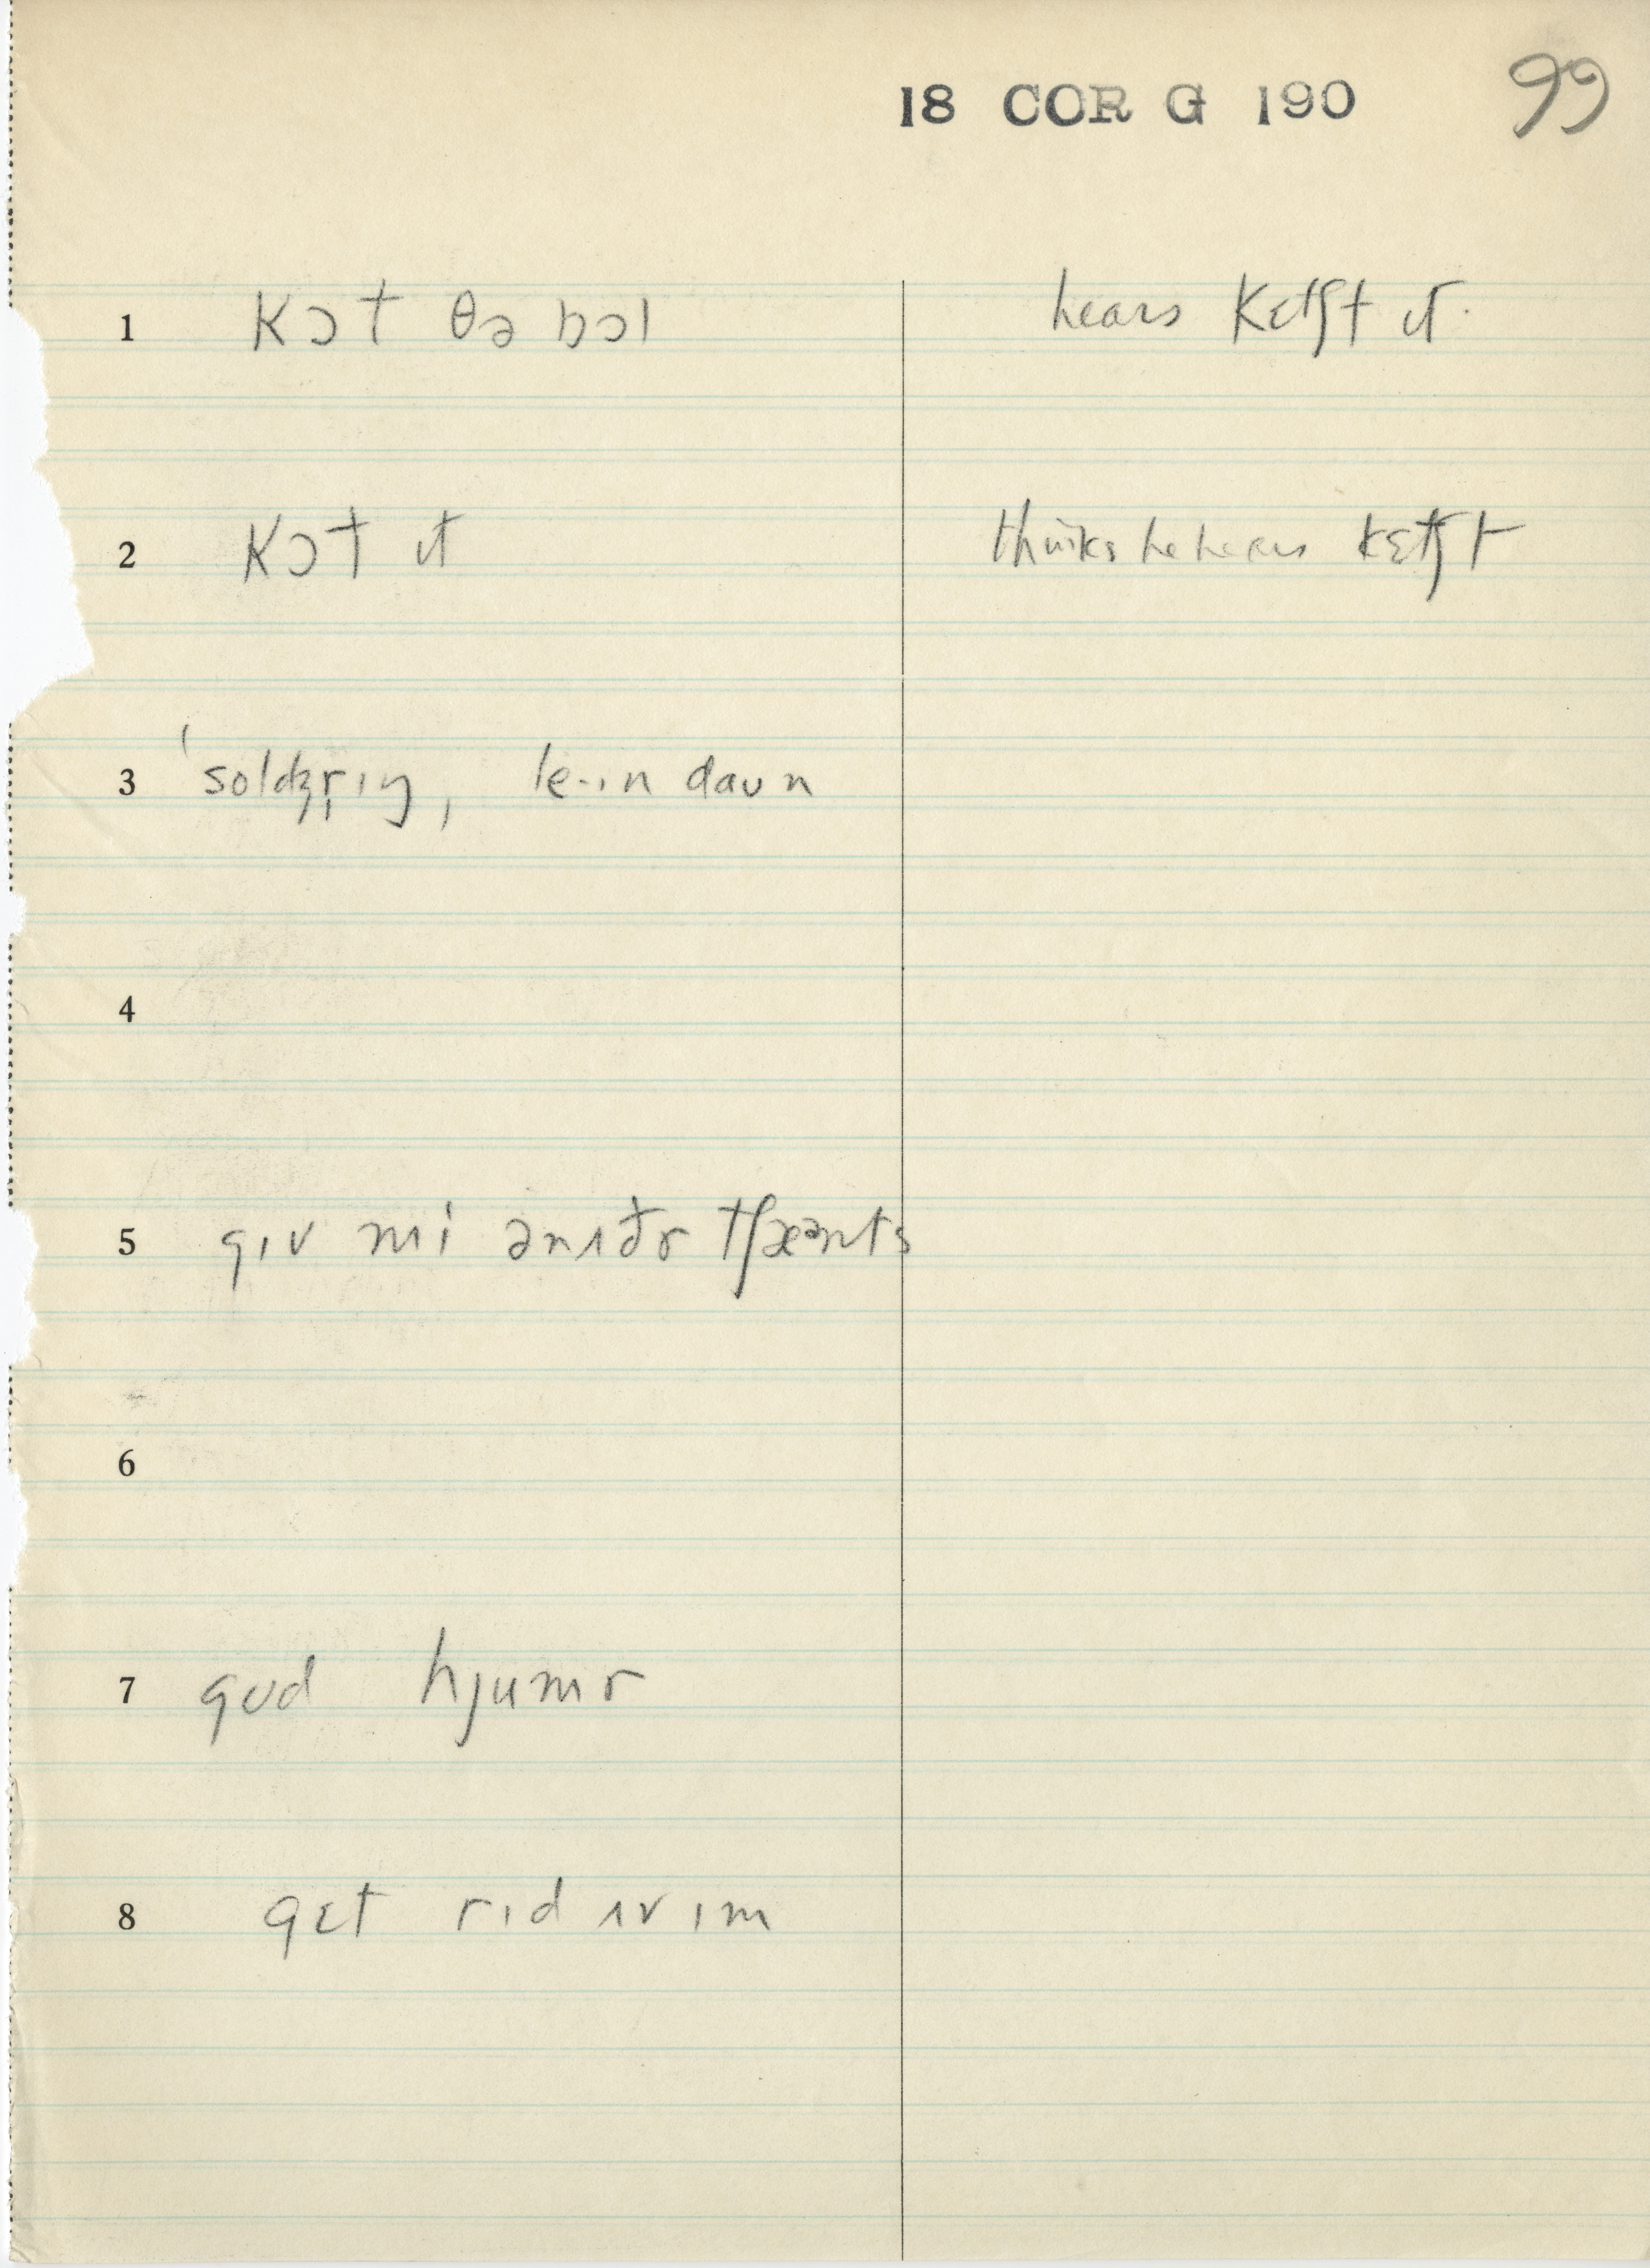 18 COR G 190 99
1 kɔt θə bɔl hears kɛtʃt ɪt.
2 kɔt ɪt thinks he hears kɛtʃt
3 ˈsoldʒr̩ɪŋ, le·ɪn daʊn
4
5 gɪv mi ənʌðɚ tʃæənts
6
7 gʊd hjumɚ
8 gɛt rɪd ʌv ɪm